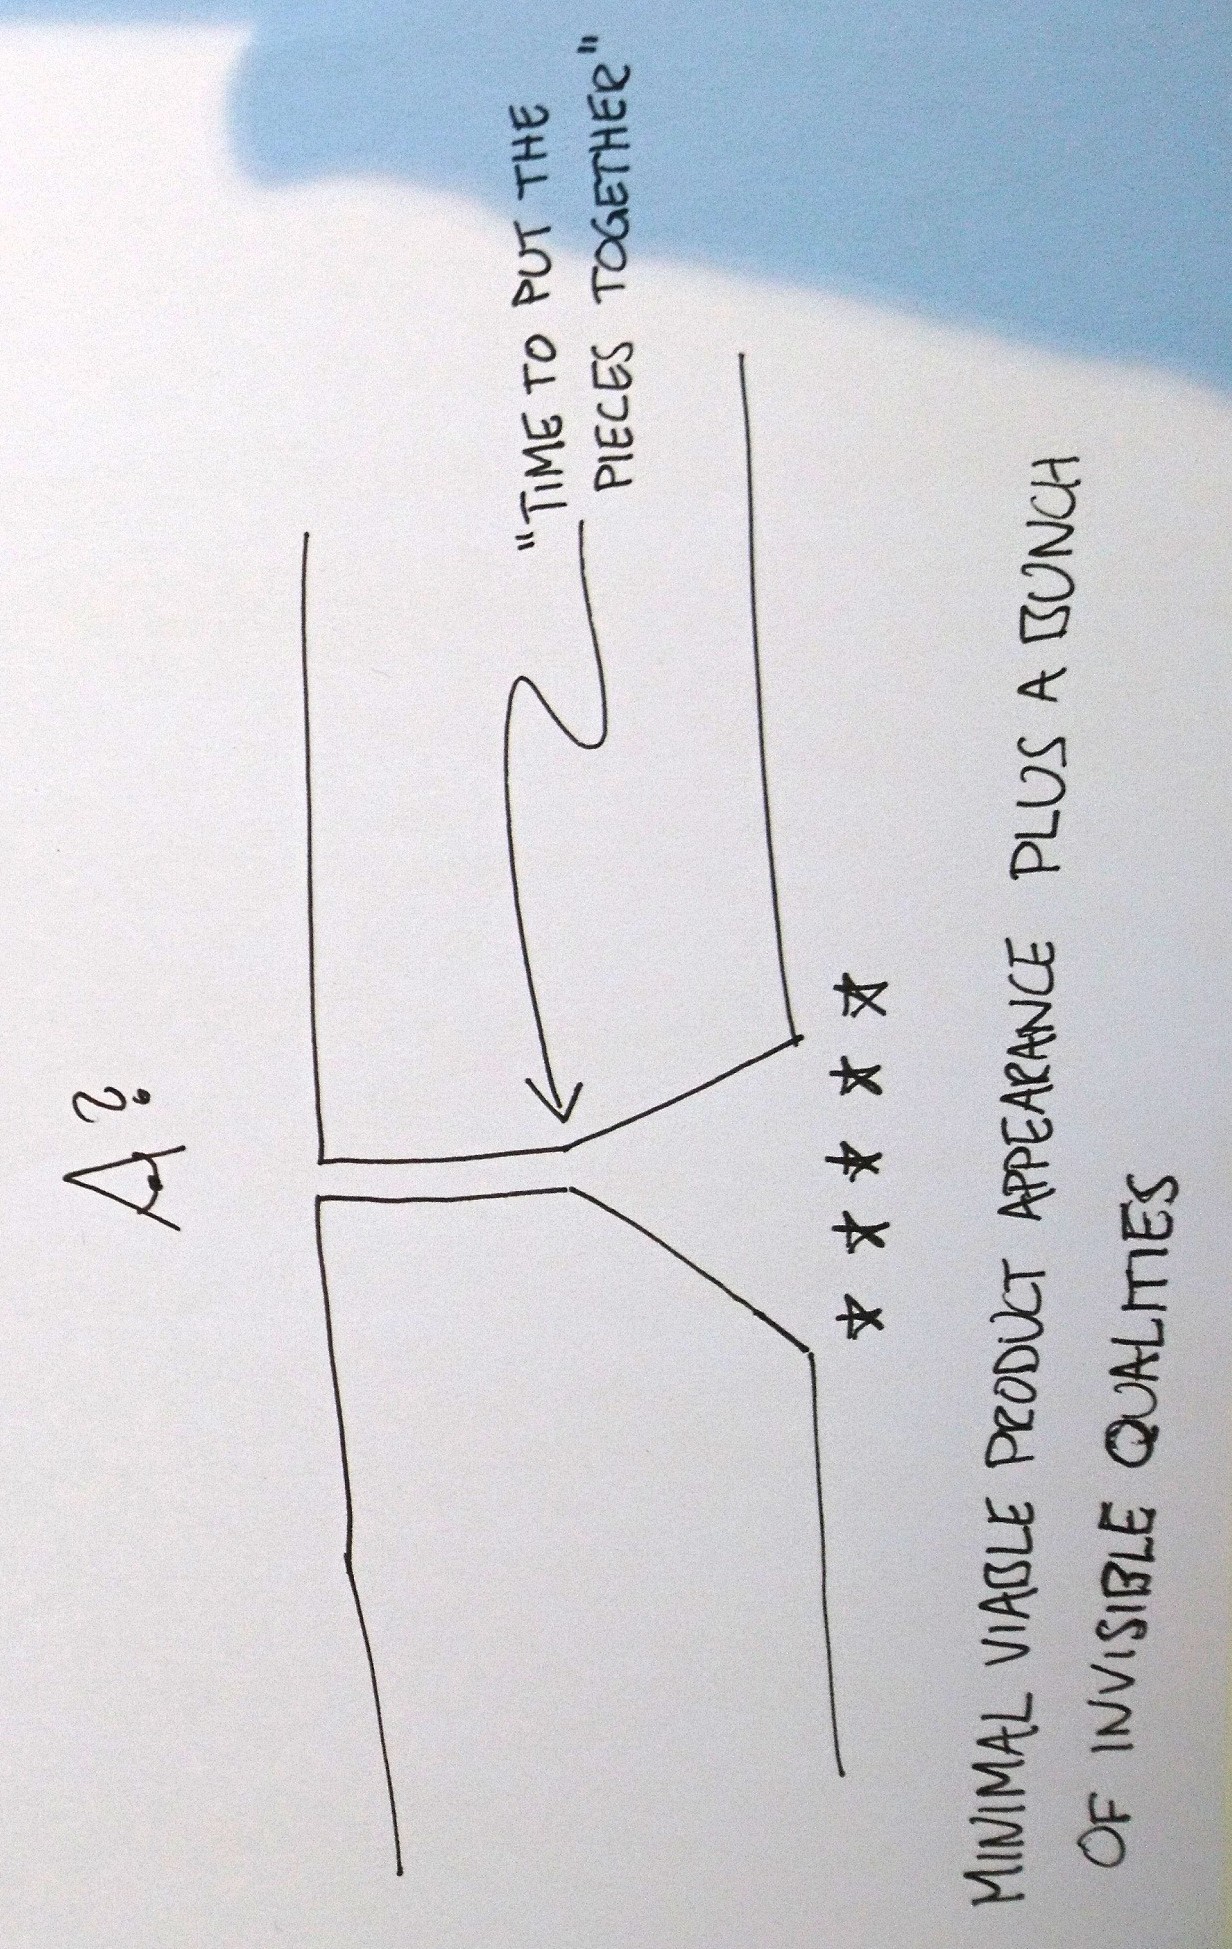 A?
"TIME TO PUT THE
PIECES TOGETHER"
MINIMAL VIABLE PRODUCT APPEARANCE PLUS A BUNCH
OF INVISIBLE QUALITIES